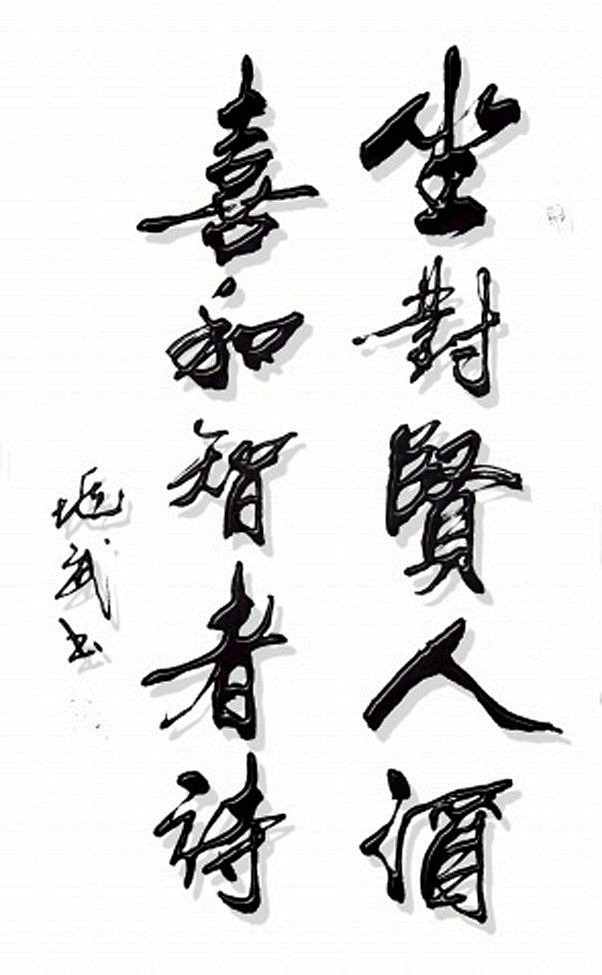 坐對賢人酒
喜和智者詩
武书